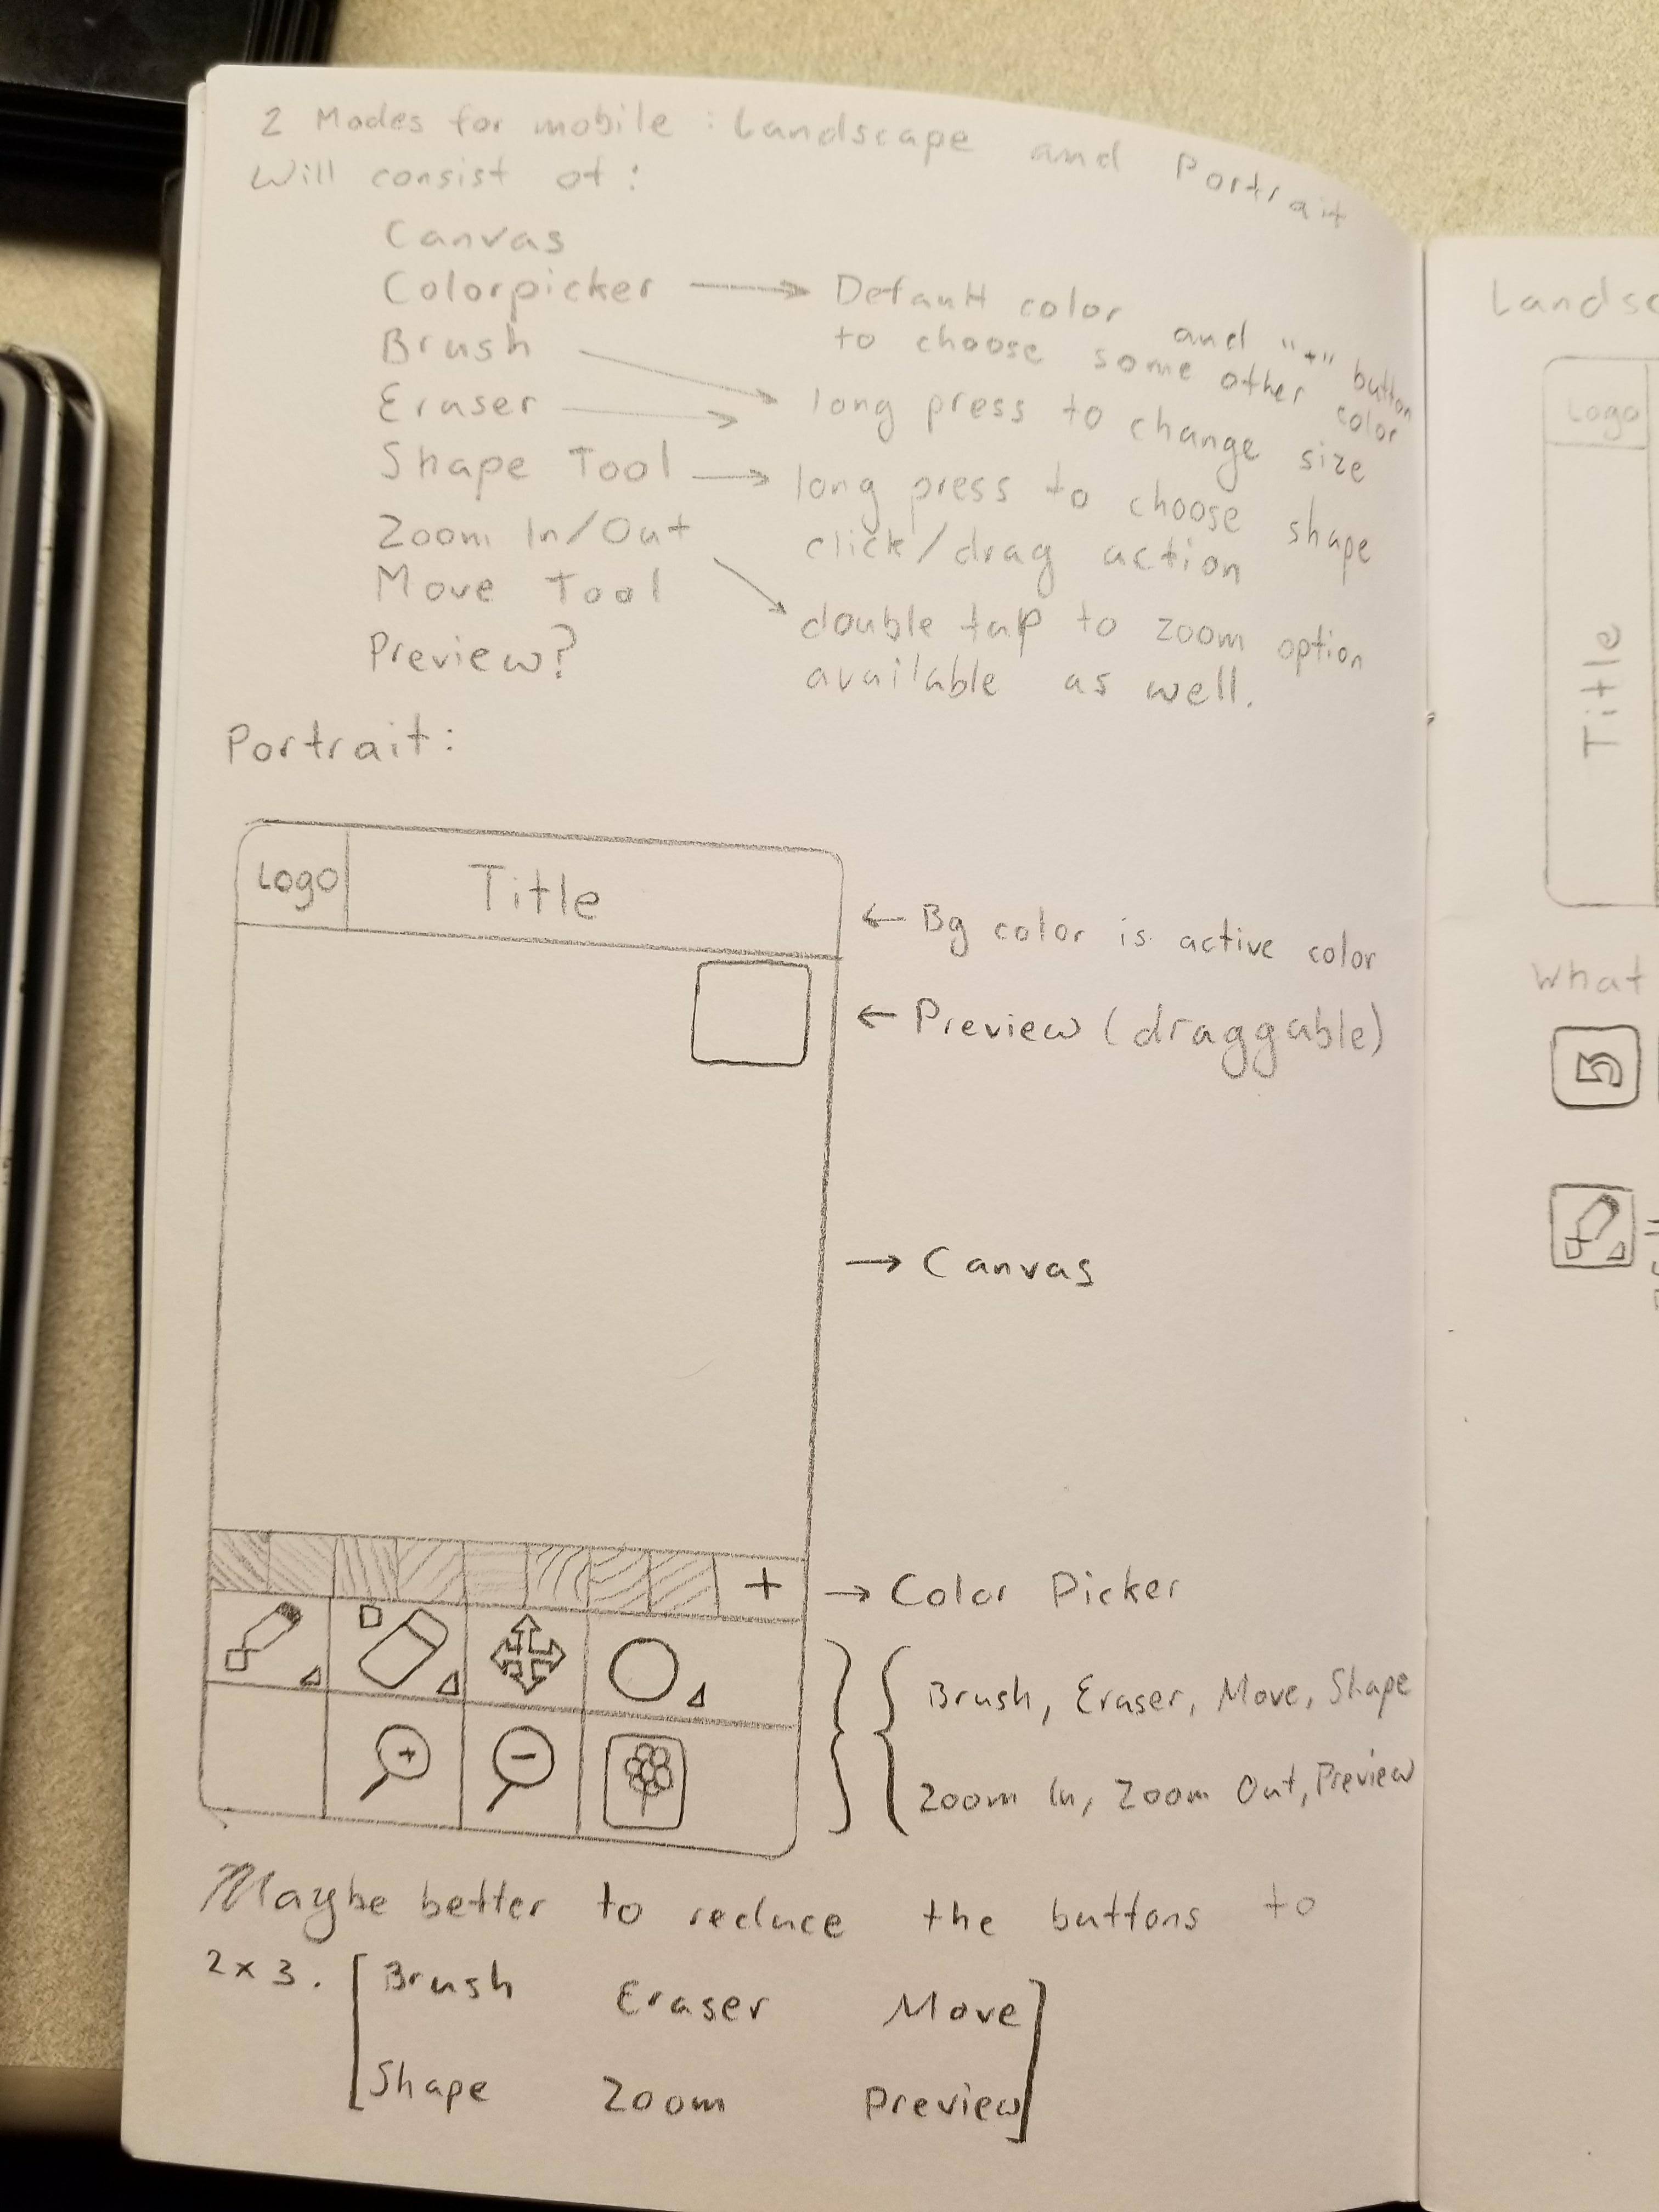 2 Modes for mobile : Landscape and Portrait
Will consist of :
Canvas
Colorpicker → Default color and "+" button
to choose some other color
Brush
long press to change size
Eraser
Shape Tool → long press to choose shape
click/drag action
Zoom In/Out
Move Tool
double tap to zoom option
available as well.
Preview?
Portrait :
Logo
Title
← Bg color is active color
← Preview (draggable)
→ Canvas
+
→ Color Picker
Brush, Eraser, Move, Shape
Zoom In, Zoom Out, Preview
Maybe better to reduce the buttons to
2x3. [Brush Eraser Move
Shape Zoom Preview]
Logo
Title
What